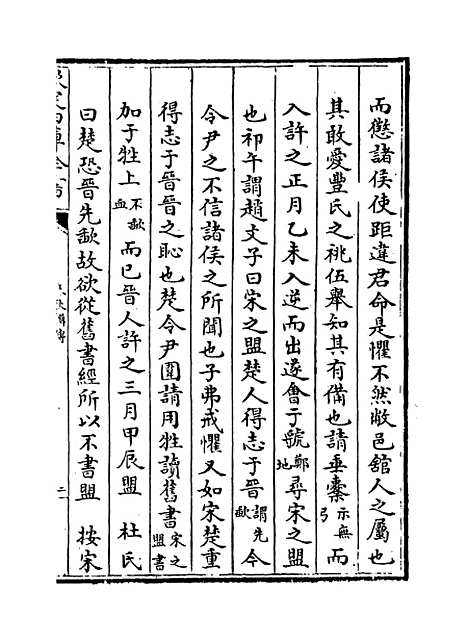 而懲諸侯使距違君命是懼不然敝邑館人之屬也
其敢愛豐氏之祧伍舉知其有備也請垂櫜示無弓而
入許之正月乙未入逆而出遂會于虢鄭地尋宋之盟
也祁午謂趙文子曰宋之盟楚人得志于晉謂先歃今
令尹之不信諸侯之所聞也子弗戒懼又如宋楚重
得志于晉晉之恥也楚令尹圍請用牲讀舊書宋之盟書
加于牲上不歃血而已晉人許之三月甲辰盟 杜氏
曰楚恐晉先歃故欲從舊書經所以不書盟 按宋
欽定四庫全書
二